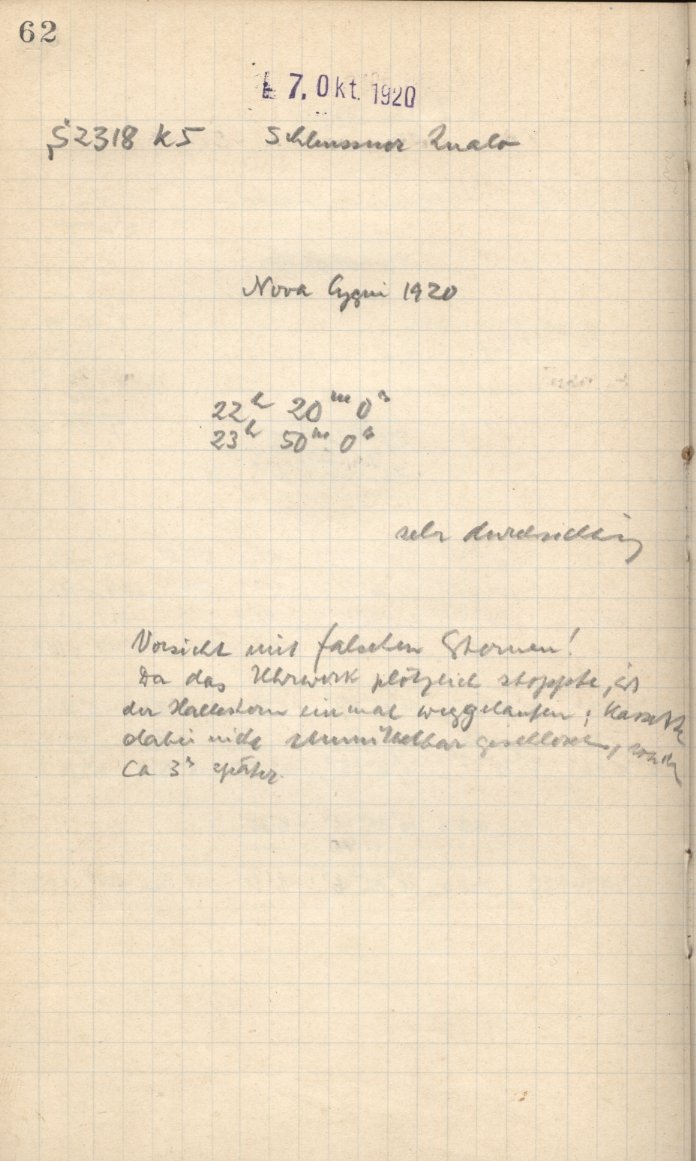 62
7. Okt. 1920
S2318 K5 Schleussner
Nova Cygni 1920
22h 20m 0s
23h 50m 0s
sehr durchsichtig
Vorsicht mit falschen Sternen!
Da das Uhrwerk plötzlich stoppte, ist
der Haltestern einmal weggelaufen; Kassette
dabei nicht unmittelbar geschlossen, sondern
ca 3s später.